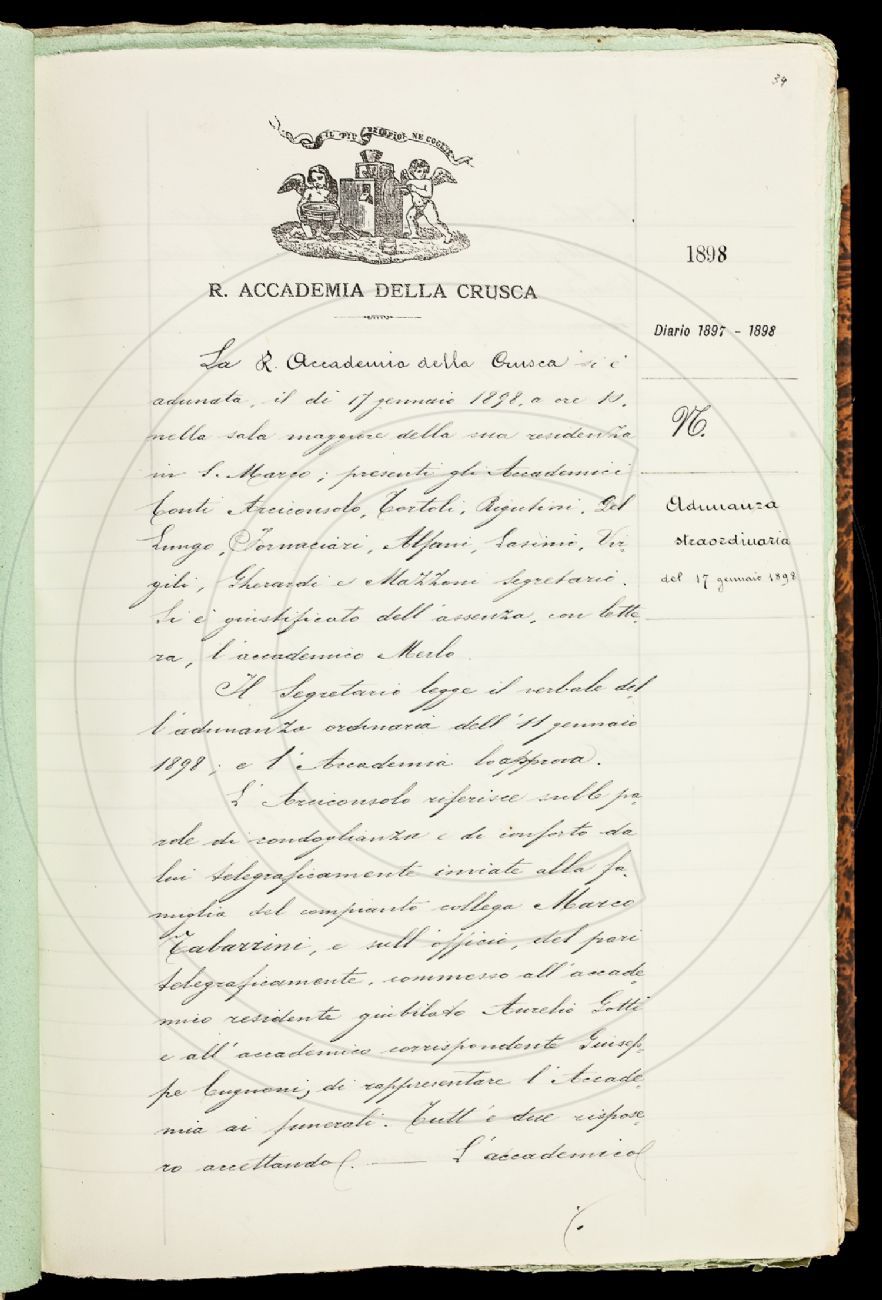 39
IL PIÙ BEL FIOR NE COGLIE
R. ACCADEMIA DELLA CRUSCA
1898
Diario 1897 - 1898
N.
Adunanza
straordinaria
del 17 gennaio 1898
La R. Accademia della Crusca si è
adunata, il dì 17 gennaio 1898, a ore 11,
nella sala maggiore della sua residenza
in S. Marco; presenti gli Accademici
Conti Arciconsolo, Tortoli, Rigutini, Del
Lungo, Fornaciari, Alfani, Lasinio, Vir-
gili, Gherardi e Mazzoni Segretario.
Si è giustificato dell'assenza, con lette-
ra, l'accademico Merlo.
Il Segretario legge il verbale del-
l'adunanza ordinaria dell'11 gennaio
1898; e l'Accademia lo approva.
L'Arciconsolo riferisce sulle pa-
role di condoglianza e di conforto da
lui telegraficamente inviate alla fa-
miglia del compianto collega Marco
Tabarrini, e sull'officio, del pari
telegraficamente, commesso all'accade-
mico residente giubilato Aurelio Gotti
e all'accademico corrispondente Giusep-
pe Cugnoni, di rappresentare l'Accade-
mia ai funerali. Tutt'e due rispose-
ro accettando. — L'accademico